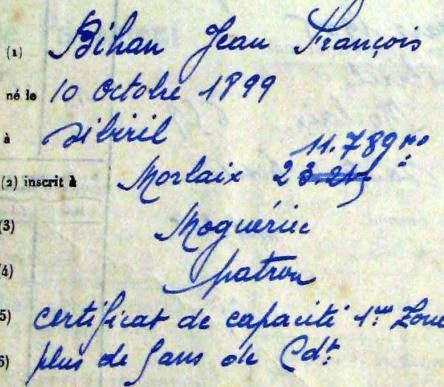 (1) Bihan Jean François
né le 10 Octobre 1899
à Sibiril
11.789 no
(2) inscrit à Morlaix 2
(3) Moguériec
(4) patron
(5) certificat de capacité 1ère Zone
(6) plus de 5 ans de Cdt